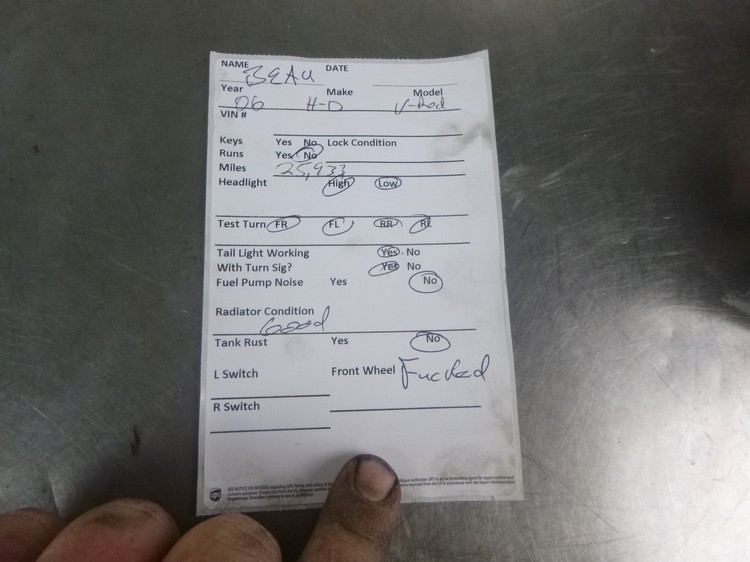 NAME BEAU DATE
Year 06 Make H-D Model V-Rod
VIN #
Keys Yes No Lock Condition
Runs Yes No
Miles 25,933
Headlight High Low
Test Turn FR FL RR RL
Tail Light Working Yes No
With Turn Sig? Yes No
Fuel Pump Noise Yes No
Radiator Condition
Good
Tank Rust Yes No
L Switch Front Wheel Fucked
R Switch
UPS